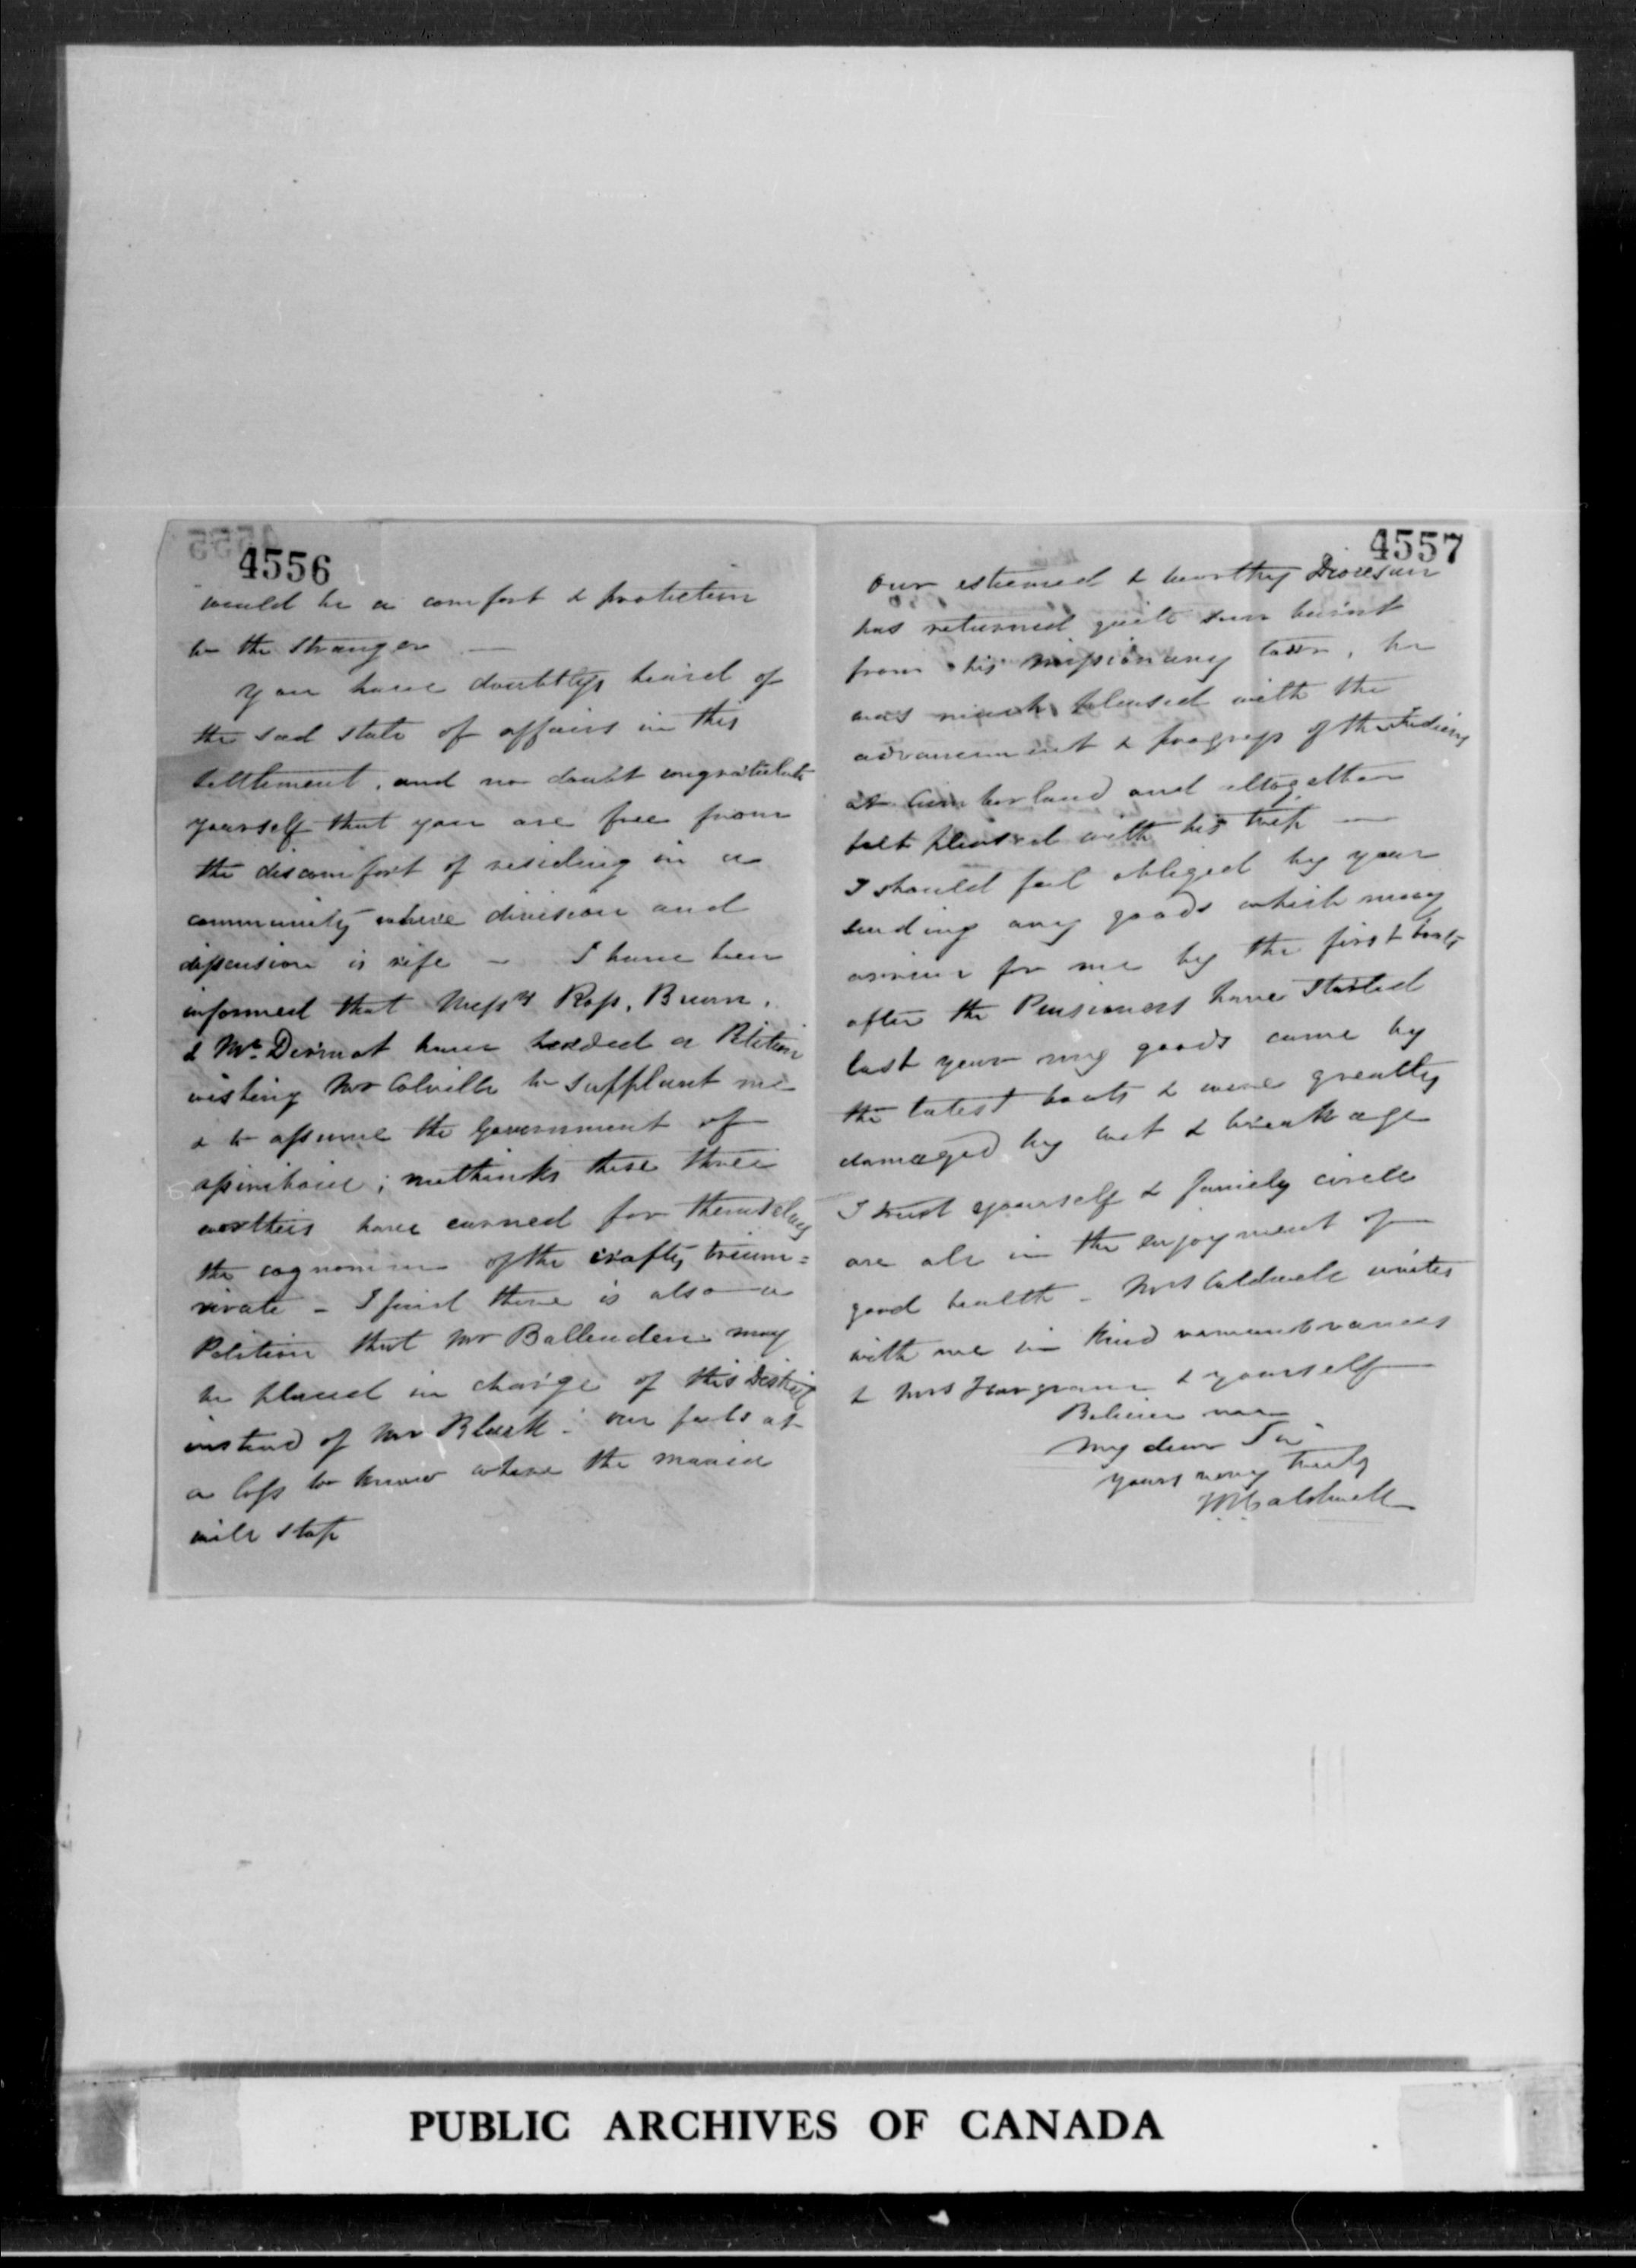 4556
would be a comfort & protection
to the stranger —
You have doubtless heard of
the sad state of affairs in this
Settlement, and no doubt congratulate
yourself that you are free from
the discomfort of residing in a
community where division and
dissension is rife — I have been
informed that Messrs Ross, Bunn,
& McDermot have headed a Petition
wishing Mr Colville to supplant me
& to assume the Government of
Assiniboia; methinks these three
worthies have earned for themselves
the cognomen of the crafty trium=
virate — I find there is also a
Petition that Mr Ballenden may
be placed in charge of this District
instead of Mr Black. one feels at
a loss to know where the mania
will stop
4557
Our esteemed & worthy Diocesan
has returned quite sun burnt
from his missionary tour, he
was much pleased with the
advancement & progress of the Indians
at Cumberland and altogether
felt pleased with his trip —
I should feel obliged by your
sending any goods which may
arrive for me by the first boats
after the Pensioners have started
last year my goods came by
the latest boats & were greatly
damaged by wet & breakage
I trust yourself & family circle
are all in the enjoyment of
good health — Mrs Caldwell unites
with me in kind remembrances
to Mrs Hargrave & yourself
Believe me
My dear Sir
Yours very truly
W Caldwell
PUBLIC ARCHIVES OF CANADA